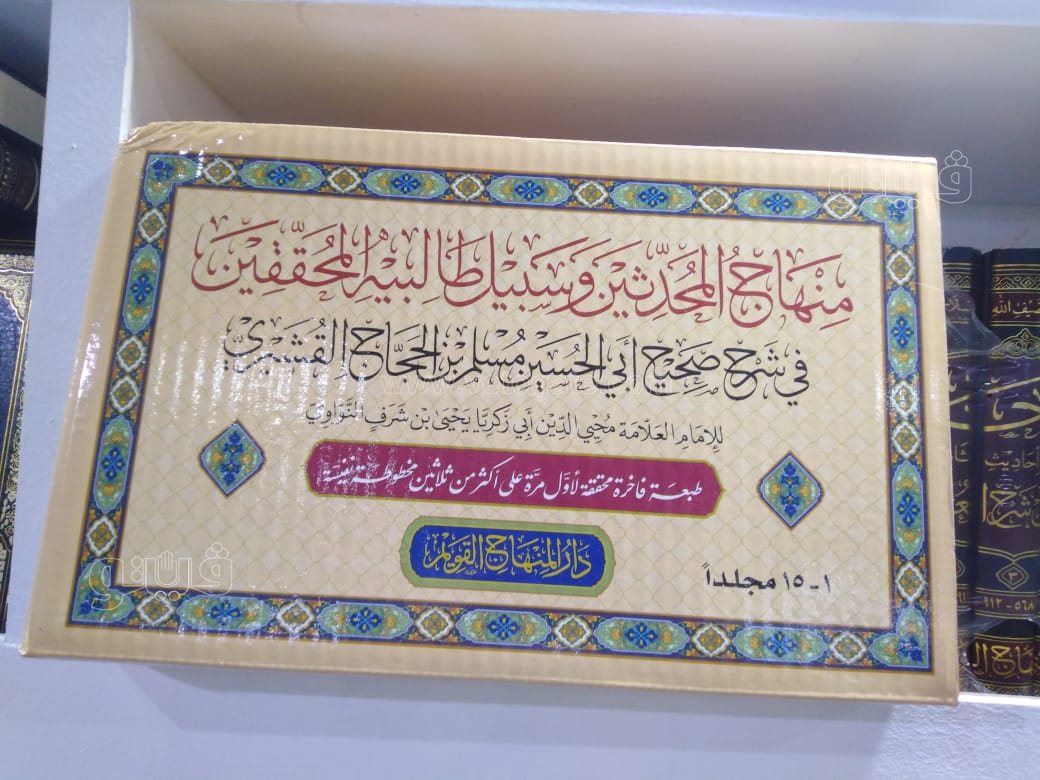 مِنْهَاجُ المُحَدِّثِينَ وَسَبِيلُ طَالِبِيهِ المُحَقِّقِينَ
فِي شَرْحِ صَحِيحِ أَبِي الحُسَيْنِ مُسْلِمِ بْنِ الحَجَّاجِ القُشَيْرِيّ
للإمام العلامة محيي الدين أبي زكريا يحيى بن شرف النواوي
طبعة فاخرة محققة لأول مرة على أكثر من ثلاثين مخطوطة نفيسة
دار المنهاج القويم
١ - ١٥ مجلداً
ضيف الله
أحاديث
شرح
٣
٥٦٨ - ٩١٢
قرینو
قرینو